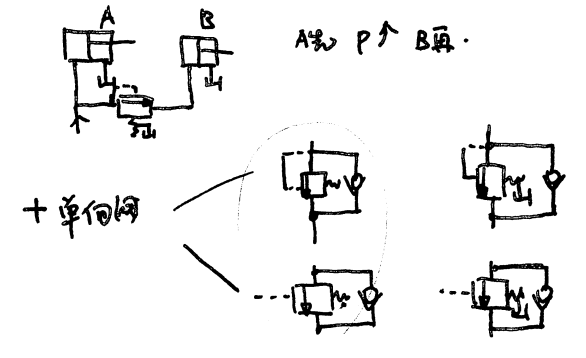 A B
A先 P↑ B再.
+ 单向阀